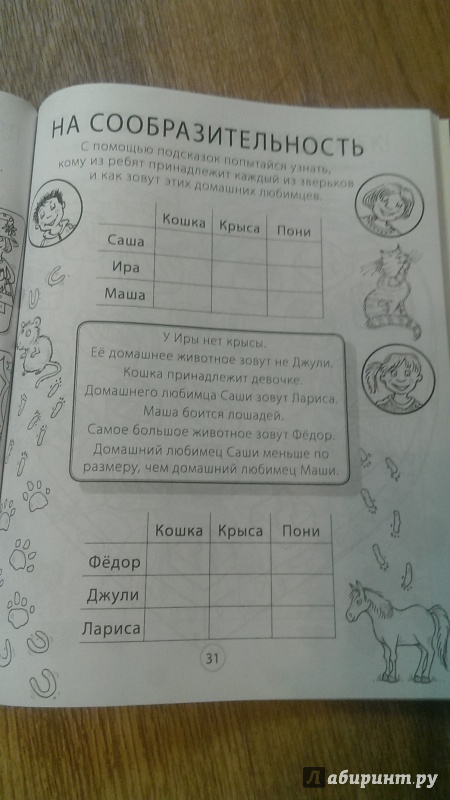 НА СООБРАЗИТЕЛЬНОСТЬ
С помощью подсказок попытайся узнать,
кому из ребят принадлежит каждый из зверьков
и как зовут этих домашних любимцев.
Кошка Крыса Пони
Саша
Ира
Маша
У Иры нет крысы.
Её домашнее животное зовут не Джули.
Кошка принадлежит девочке.
Домашнего любимца Саши зовут Лариса.
Маша боится лошадей.
Самое большое животное зовут Фёдор.
Домашний любимец Саши меньше по
размеру, чем домашний любимец Маши.
Кошка Крыса Пони
Фёдор
Джули
Лариса
31
Лабиринт.ру